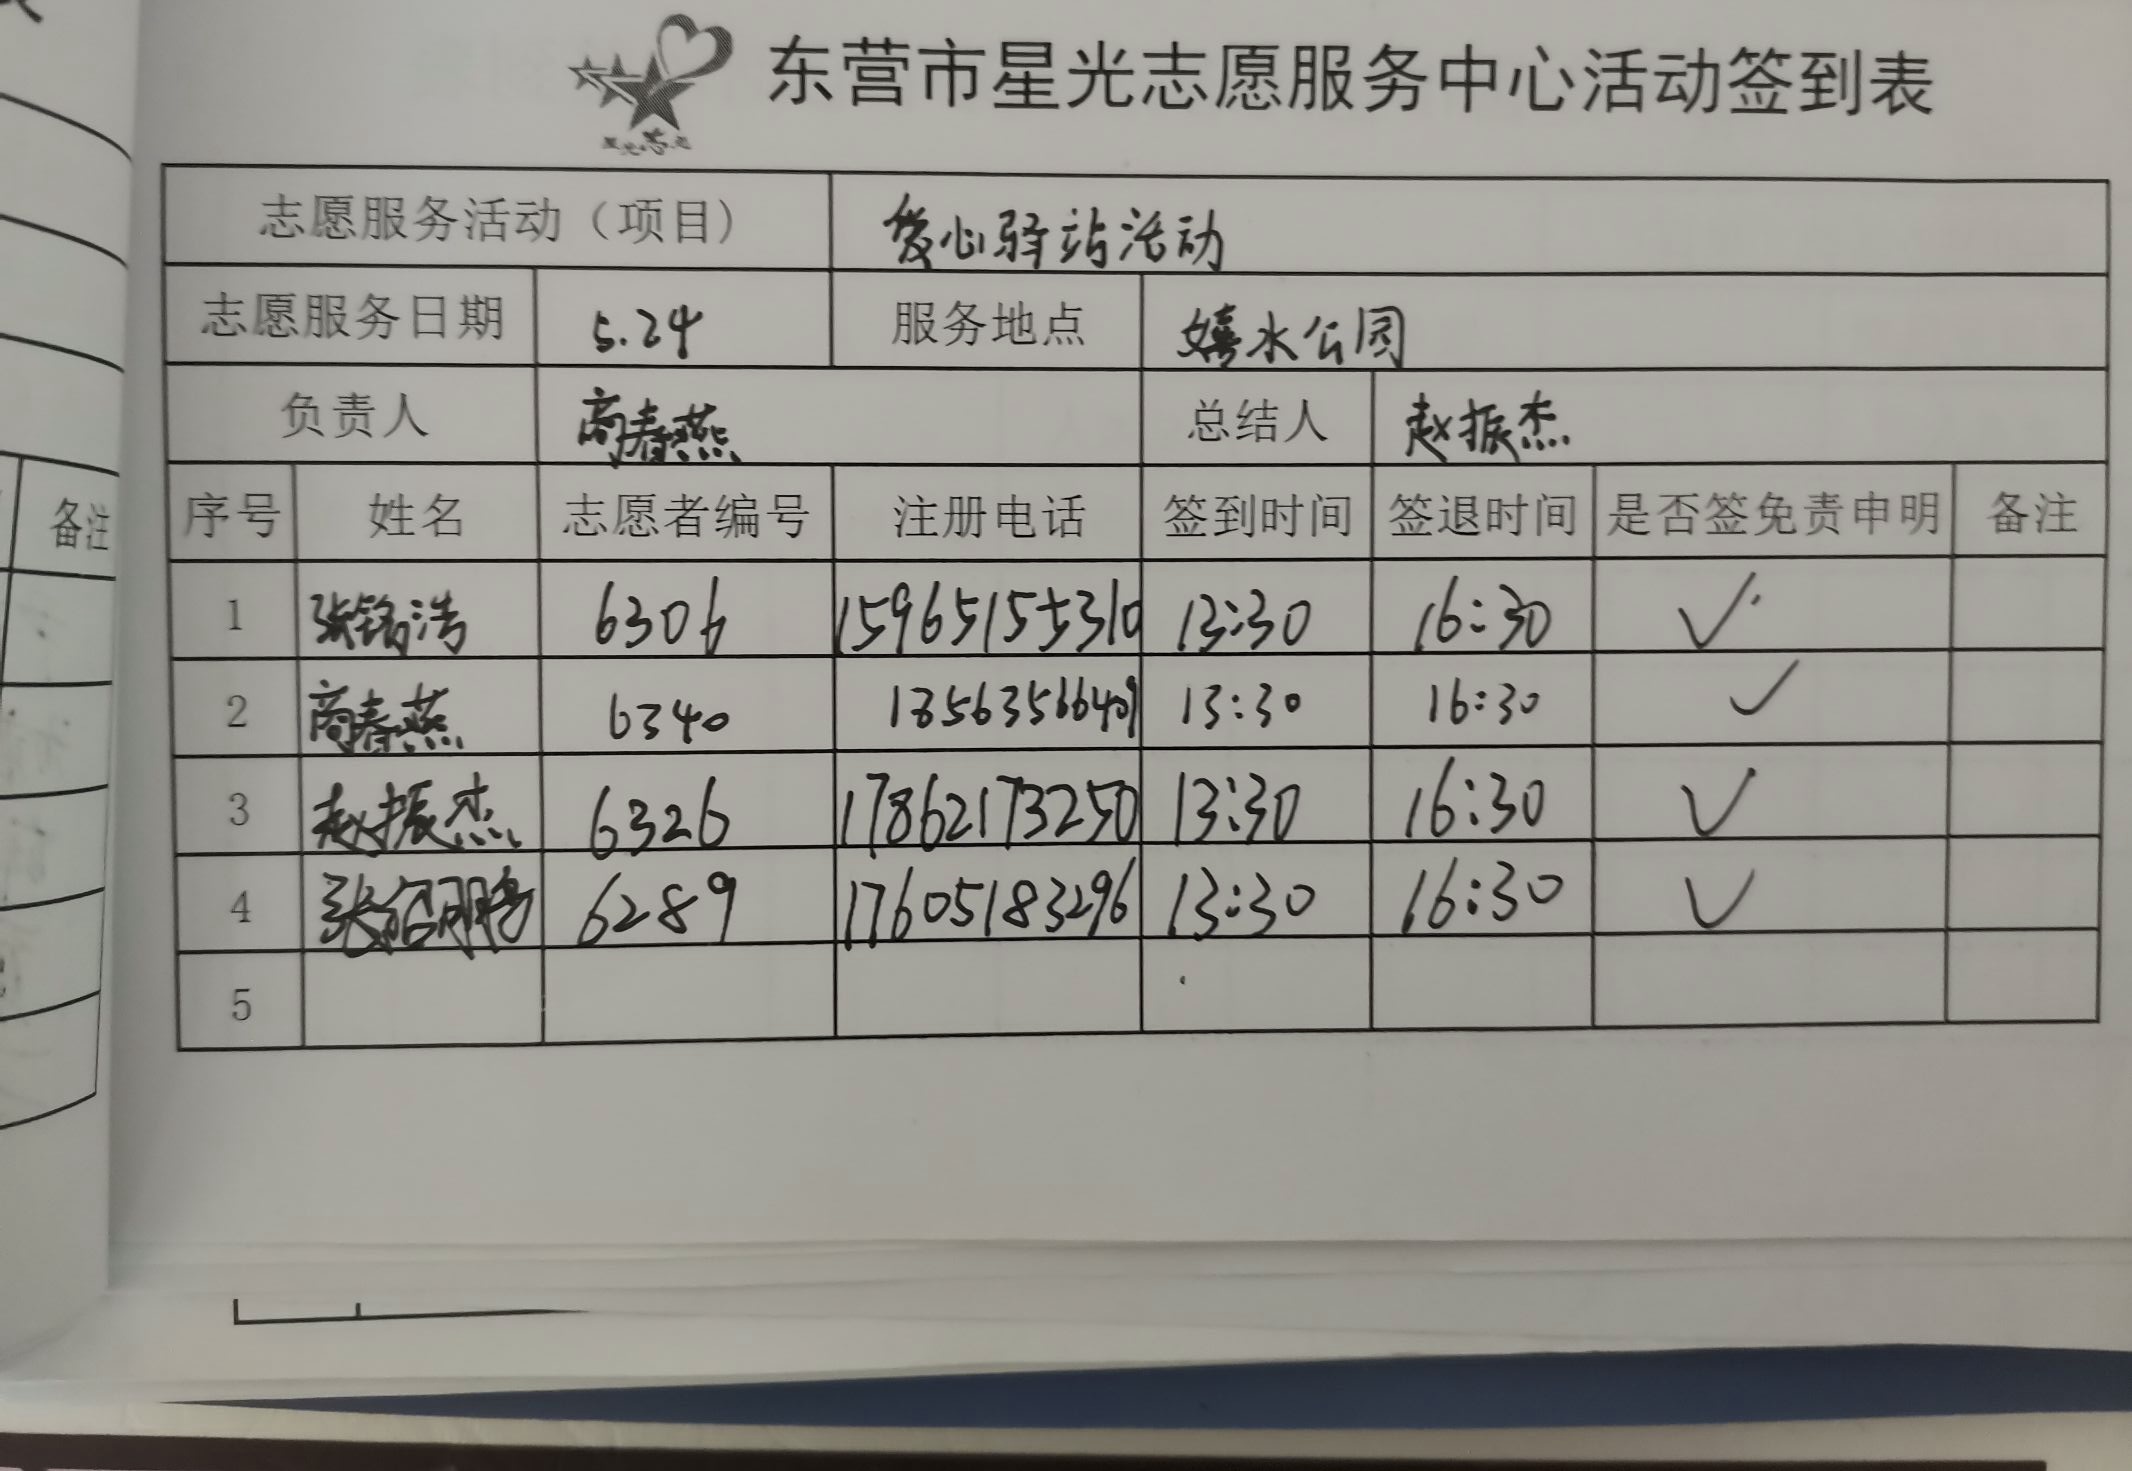 东营市星光志愿服务中心活动签到表
星光志愿
志愿服务活动（项目） 爱心驿站活动
志愿服务日期 5.24 服务地点 嬉水公园
负责人 商春燕 总结人 赵振杰
序号 姓名 志愿者编号 注册电话 签到时间 签退时间 是否签免责申明 备注
1 张铭浩 6306 15965155310 13:30 16:30 ✓
2 商春燕 6340 13:30 16:30 ✓
3 赵振杰 6326 17862173250 13:30 16:30 ✓
4 6289 17605183296 13:30 16:30 ✓
5
备注